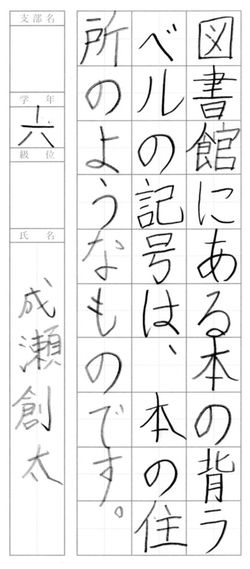 図書館にある本の背ラ
ベルの記号は、本の住
所のようなものです。
支部名
学年
小六
級位
氏名
成瀬創太